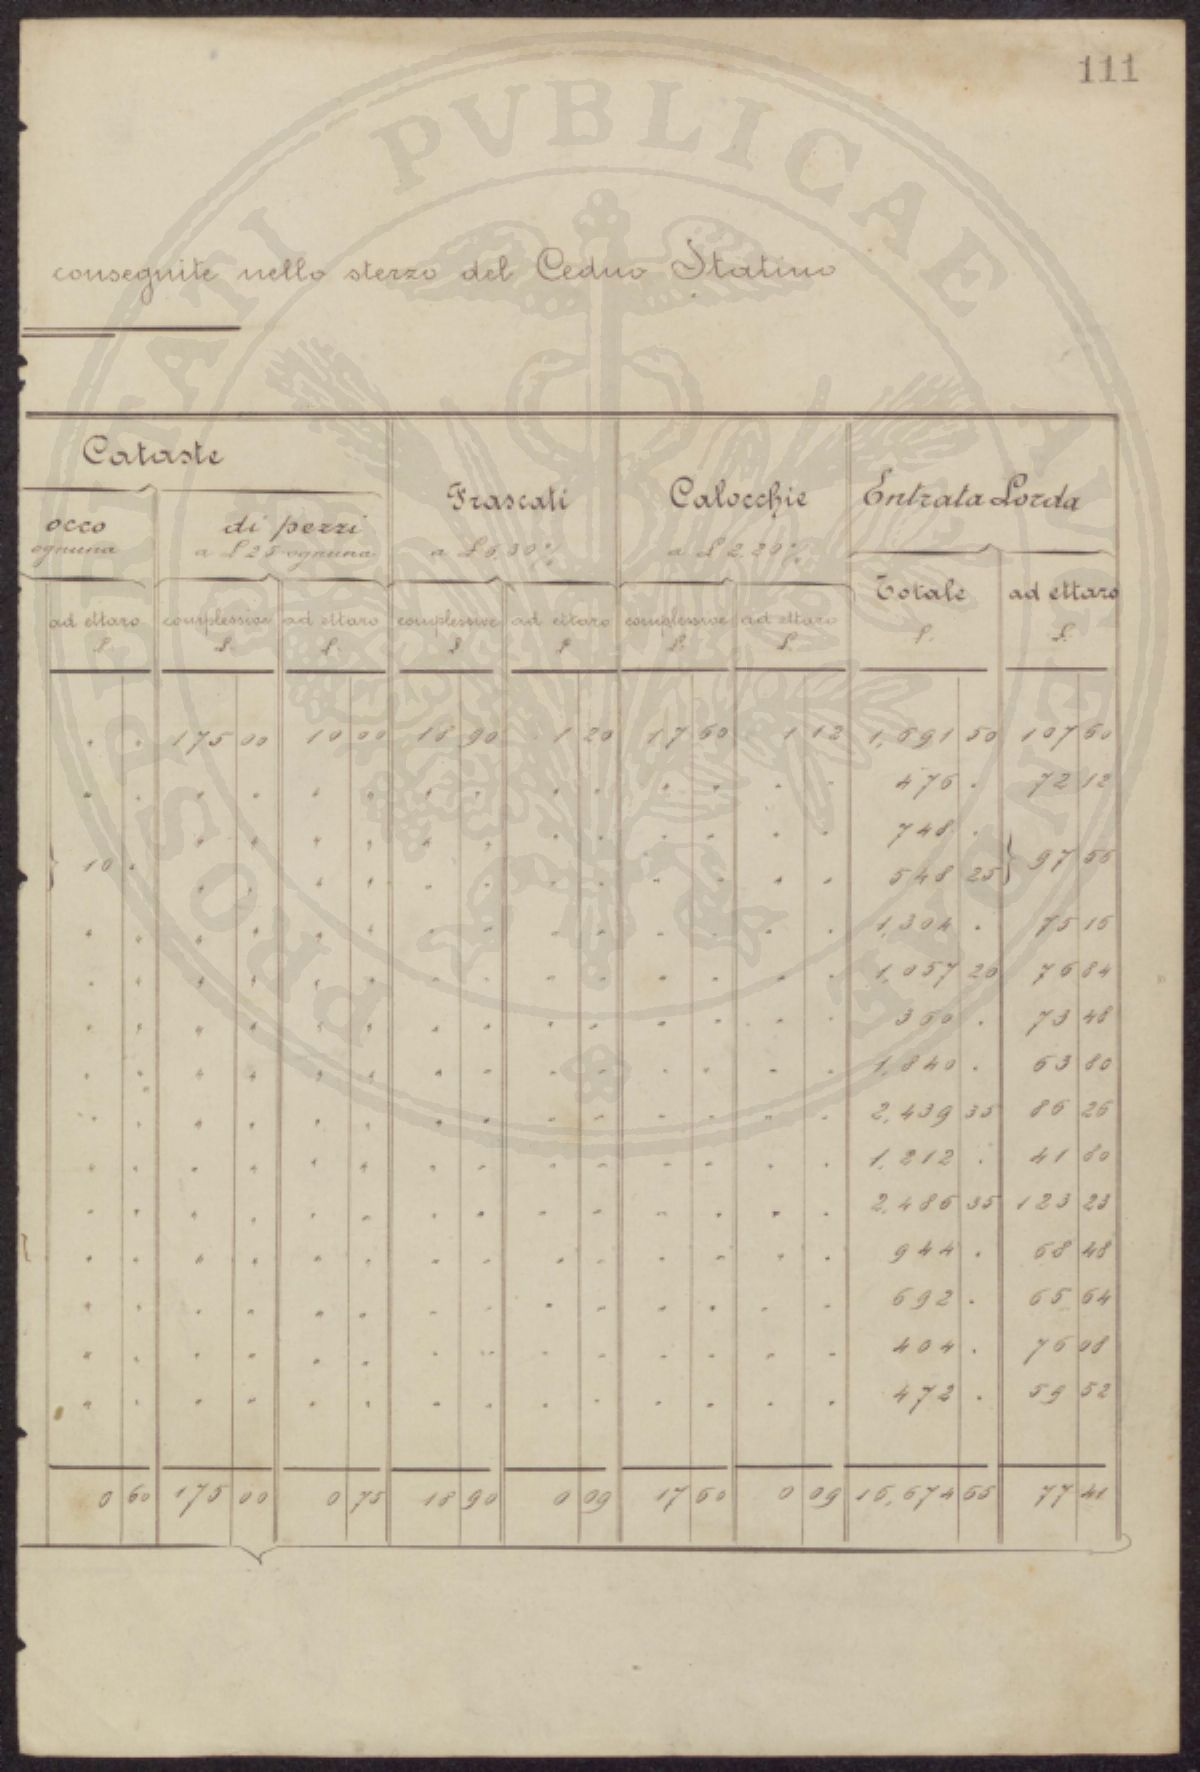 111
PROSPERITATI PVBLICAE AVGENDAE
conseguite nello sterzo del Ceduo Statino
Cataste Frascati Calocchie Entrata Lorda
occo di pezzi
ognuna a £ 25 ognuna a £ 6,30 % a £ 2,20 %
Totale ad ettaro
ad ettaro complessive ad ettaro complessive ad ettaro complessive ad ettaro £. £.
£. £. £. £ £ £. £.
" " 175 00 10 00 18 90 1 20 17 60 1 12 1,691 50 107 60
" " " " " " " " " " " " " " 476 " 72 12
" " " " " " " " " " " " 748 "
} 10 " } 97 56
" " " " " " " " " " " " 548 25
" " " " " " " " " " " " " " 1,304 " 75 16
" " " " " " " " " " " " " " 1,057 20 76 84
" " " " " " " " " " " " " " 360 " 73 48
" " " " " " " " " " " " " " 1,840 " 63 80
" " " " " " " " " " " " " " 2,439 35 86 26
" " " " " " " " " " " " " " 1,212 " 41 80
" " " " " " " " " " " " " " 2,486 35 123 23
" " " " " " " " " " " " " " 944 " 68 48
" " " " " " " " " " " " " " 692 " 65 64
" " " " " " " " " " " " " " 404 " 76 08
" " " " " " " " " " " " " " 472 " 59 52
0 60 175 00 0 75 18 90 0 09 17 60 0 09 16,674 65 77 41